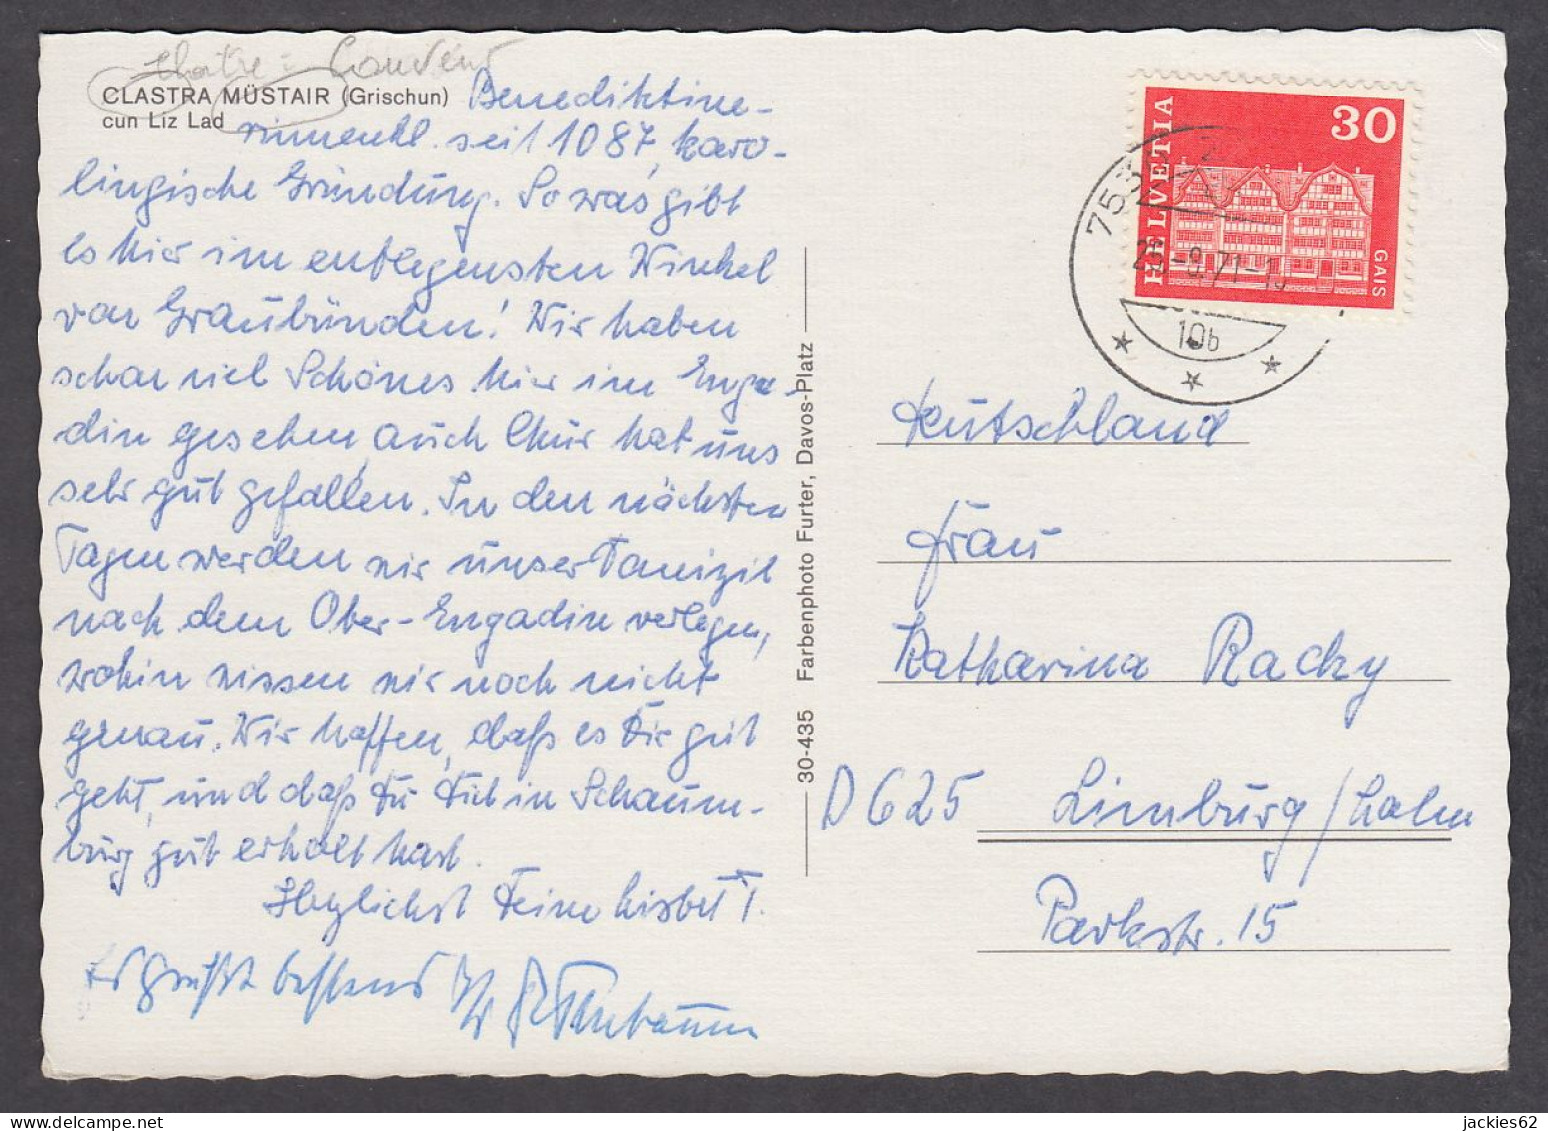 CLASTRA MÜSTAIR (Grischun)
cun Liz Lad
Benediktine-
rinnenkl. seit 1087, karo-
lingische Gründung. So was gibt
es hier im entlegensten Winkel
von Graubünden! Wir haben
schon viel Schönes hier im Enga-
din gesehen, auch Chur hat uns
sehr gut gefallen. In den nächsten
Tagen werden wir unser Domizil
nach dem Ober-Engadin verlegen,
wohin wissen wir noch nicht
genau. Wir hoffen, daß es Dir gut
geht, und daß Du Dich in Schaum-
burg gut erholt hast.
Herzlichst Deine Lisbet T.
Es grüßt bestens
30-435 Farbenphoto Furter, Davos-Platz
HELVETIA
30
GAIS
753
10b
Deutschland
Frau
Katharina Racky
D 625 Limburg/Lahn
Parkstr. 15
jackies62